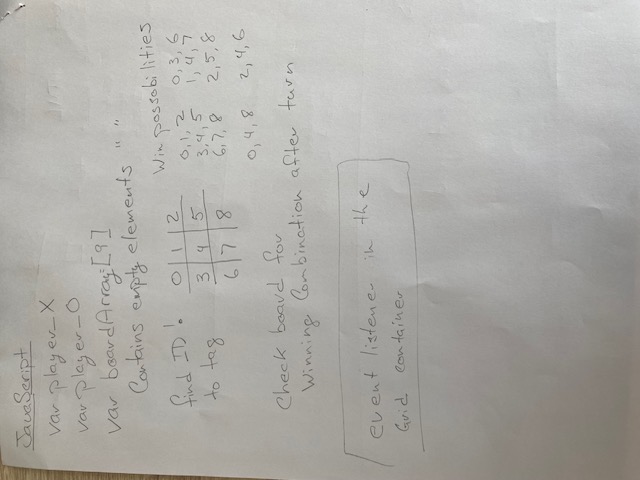 JavaScript
var player_X
var player_O
var boardArray=[9]
Contains empty elements " "
find ID!
to tag
0 | 1 | 2
3 | 4 | 5
6 | 7 | 8
Win possobilities
0,1,2 0,3,6
3,4,5 1,4,7
6,7,8 2,5,8
0,4,8 2,4,6
Check board for
Winning Combination after turn
event listener in the
Grid container